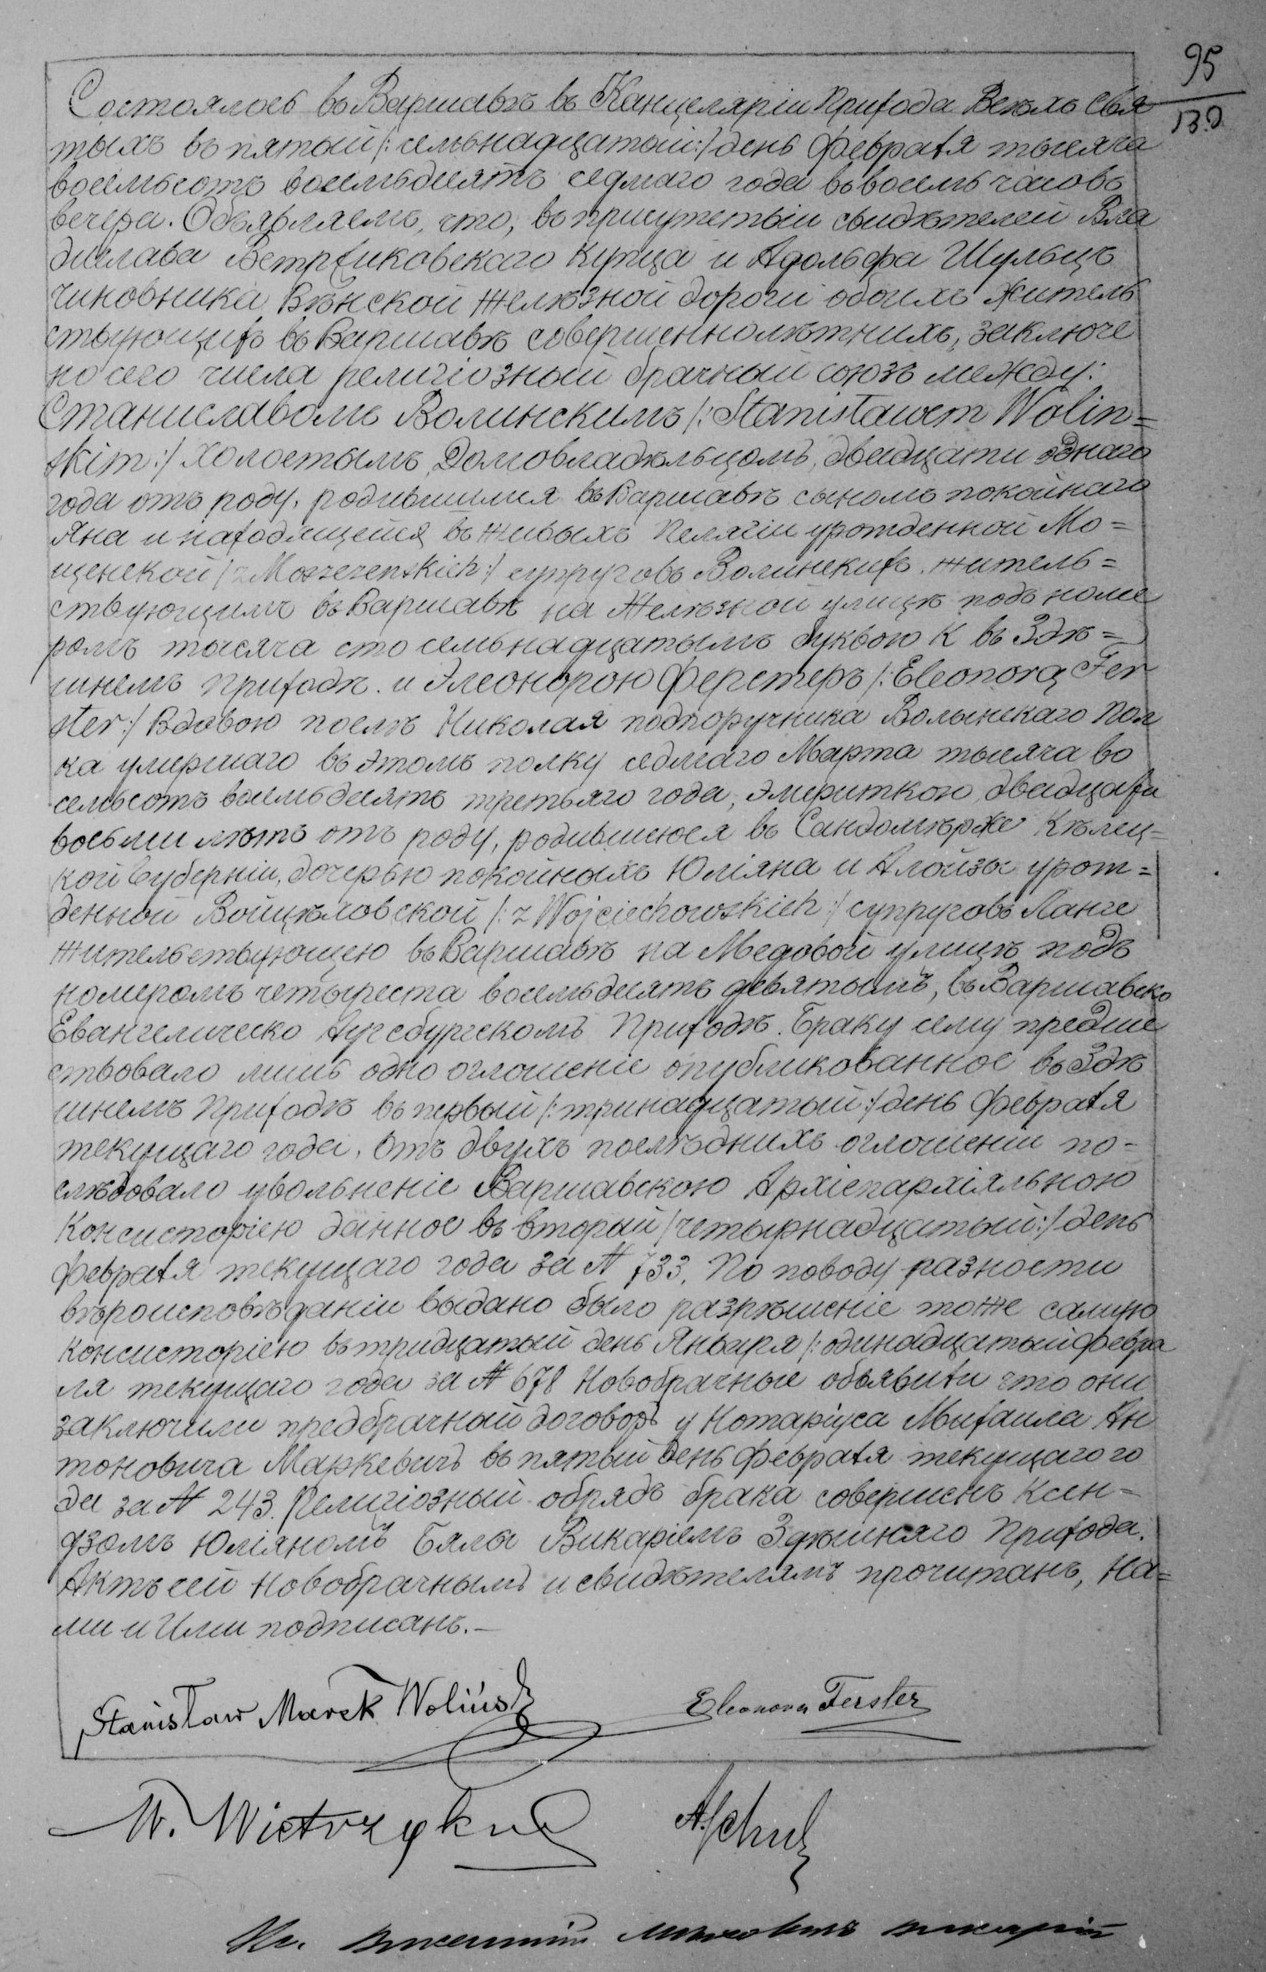 95
130
Состоялось въ Варшавѣ въ Канцеляріи Прихода Всѣхъ Свя
тыхъ въ пятый /: семьнадцатый :/ день Февраля тысяча
восемьсотъ восемьдесятъ седмаго года въ восемь часовъ
вечера. Объявляемъ, что, въ присутствіи свидѣтелей Вла
дислава Ветржиковскаго Купца и Адольфа Шульцъ
чиновника Вѣнской Желѣзной дороги обоихъ житель
ствующихъ въ Варшавѣ совершеннолѣтнихъ, заключе
но сего числа религіозный брачный союзъ между:
Станиславомъ Волинскимъ /: Stanisławem Wolin=
skim :/ Холостымъ, Домовладѣльцомъ, двадцати однаго
года отъ роду, родившимся въ Варшавѣ сыномъ покойнаго
Яна и находящейся въ живыхъ Пелагіи урожденной Мо=
щенской /: z Moszczenskich :/ супруговъ Волинскихъ. житель=
ствующимъ въ Варшавѣ на Желѣзной улицѣ подъ номе
ромъ тысяча сто семьнадцатымъ буквою К въ Здѣ=
шнемъ Приходѣ. и Элеонорою Ферстеръ /: Eleonorą Fer
ster :/ Вдовою послѣ Николая подпоручника Волынскаго Пол
ка умершаго въ этомъ полку седмаго Марта тысяча во
семьсотъ восемьдесятъ третьяго года, эмериткою, двадцати
восьми лѣтъ отъ роду, родившеюся въ Сандомѣрже Кѣлец=
кой Губерніи, дочерью покойныхъ Юліяна и Алойзы урож=
денной Войцѣховской /: z Wojciechowskich :/ супруговъ Ланге
жительствующею въ Варшавѣ на Медовой улицѣ подъ
номеромъ четыреста восемьдесятъ девятымъ, въ Варшавско
Евангелическо Аугсбургскомъ Приходѣ. Браку сему предше
ствовало лишь одно оглошеніе опубликованное въ Здѣ
шнемъ Приходѣ въ первый /: тринадцатый :/ день Февраля
текущаго года. Отъ двухъ послѣднихъ оглошеніи по=
слѣдовало увольненіе Варшавскою Архіепархіяльною
Консисторіею данное въ вторый /: четырнадцатый :/ день
Февраля текущаго года за № 733. По поводу разности
вѣроисповѣданіи выдано было разрѣшеніе тоже самую
Консисторіею въ тридцатый день Января /: одинадцатый Февра
ля текущаго года за № 678 Новобрачные объявили что они
заключили предбрачный договоръ у Нотаріуса Михаила Ан
тоновича Маркевичъ въ пятый день Февраля текущаго го
да за № 243. Религіозный обрядъ брака совершенъ Ксен=
дзомъ Юліяномъ Бялы Викаріемъ Здѣшняго Прихода.
Актъ сей Новобрачнымъ и свидѣтелямъ прочитанъ, На=
ми и Ими подписанъ.—
Stanisław Marek Woliński
Eleonora Ferster
W. Wietrzykow
A. Schulz
Кс. викарій